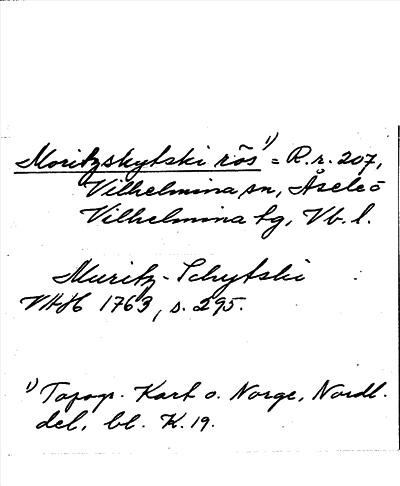 Moritzskytski rös¹⁾ = R.r. 207,
Vilhelmina sn, Åsele
Vilhelmina tg, Vb. l.
Muritz-Schytski
VAH 1763, s. 295.
¹⁾ Topogr. Kart o. Norge, Nordl.
del, bl. K. 19.